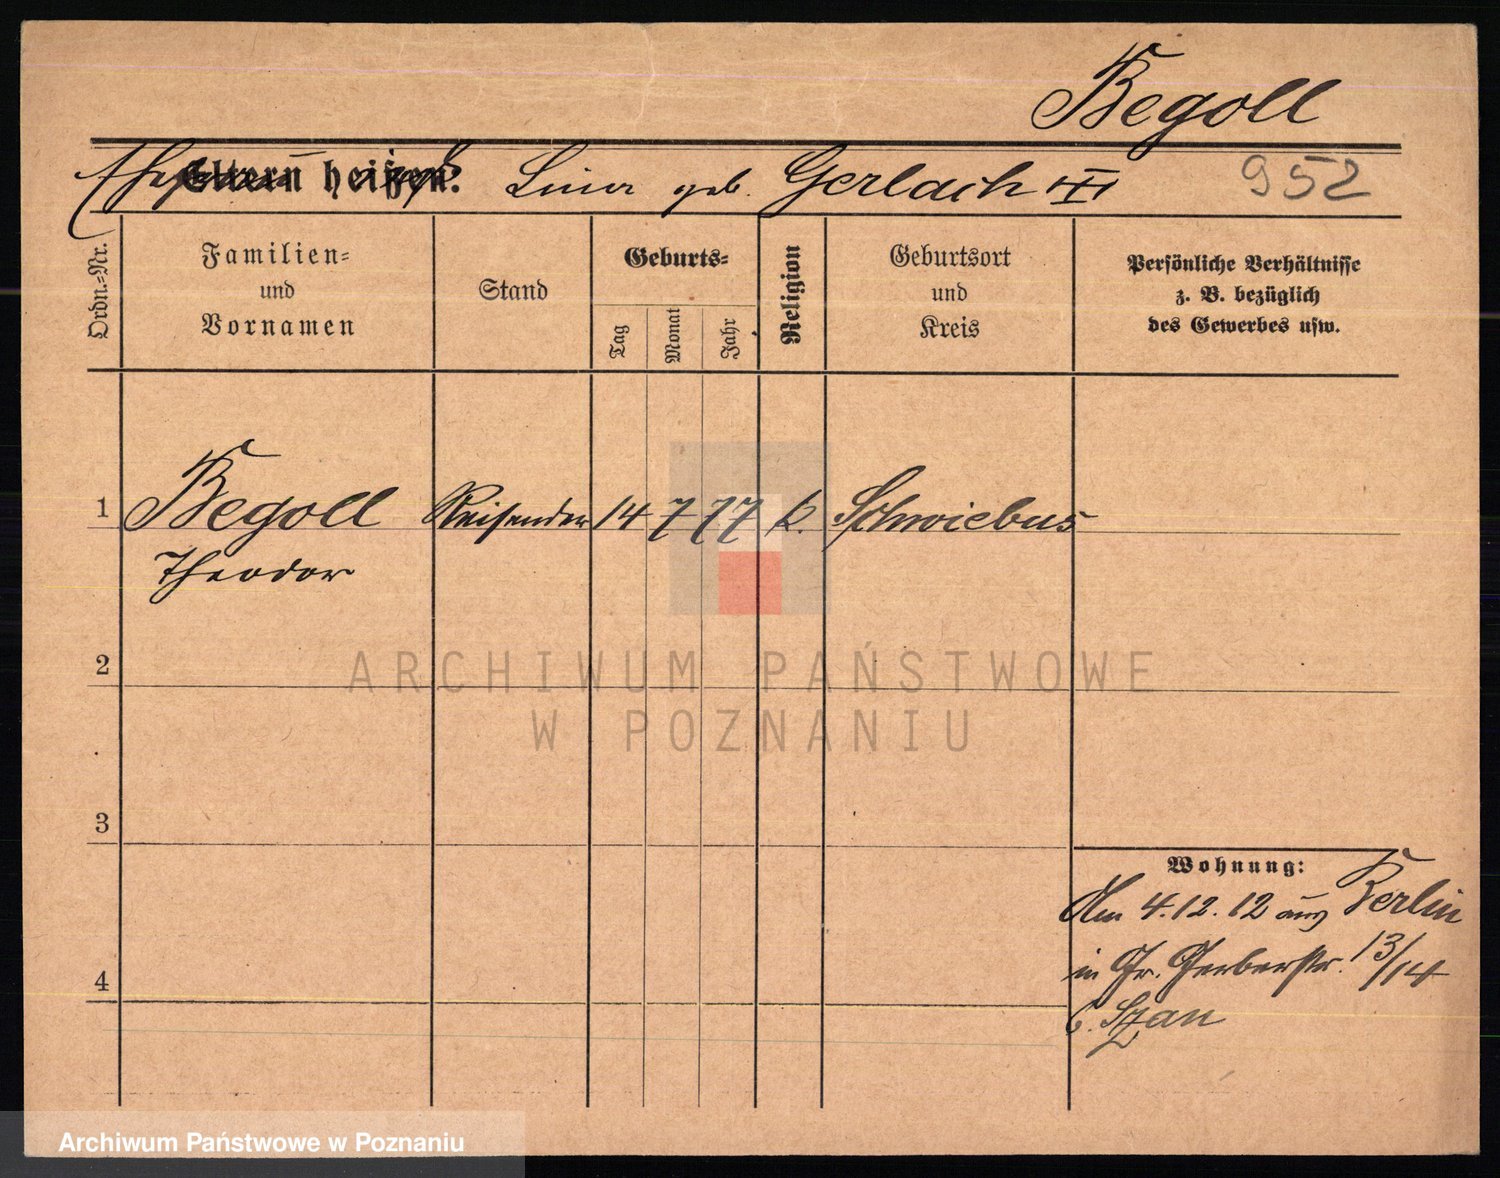 Begoll
952
Eltern heißen:
Lina geb. Gerlach III
Ordn.-Nr.
Familien-
und
Vornamen
Stand
Geburts-
Tag
Monat
Jahr
Religion
Geburtsort
und
Kreis
Persönliche Verhältnisse
z. B. bezüglich
des Gewerbes usw.
1 Begoll Reisender 14 7 77 k. Schwiebus
Theodor
2
3
4
Wohnung:
Am 4.12.12 aus Berlin
in Gr. Gerberstr. 13/14
b. Szan
ARCHIWUM PAŃSTWOWE
W POZNANIU
Archiwum Państwowe w Poznaniu